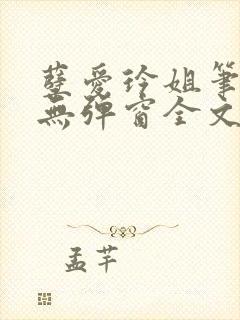 孽愛玲姐筆
無彈窗全文
孟芊